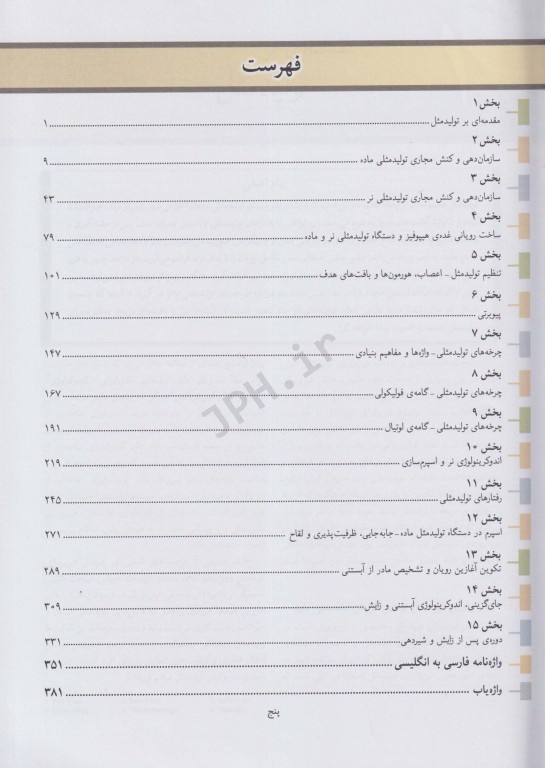 فهرست
بخش ۱
مقدمه‌ای بر تولیدمثل ۱
بخش ۲
سازمان‌دهی و کنش مجاری تولیدمثلی ماده ۹
بخش ۳
سازمان‌دهی و کنش مجاری تولیدمثلی نر ۴۳
بخش ۴
ساخت رویانی غده‌ی هیپوفیز و دستگاه تولیدمثلی نر و ماده ۷۹
بخش ۵
تنظیم تولیدمثل - اعصاب، هورمون‌ها و بافت‌های هدف ۱۰۱
بخش ۶
پیوبرتی ۱۲۹
بخش ۷
چرخه‌های تولیدمثلی - واژه‌ها و مفاهیم بنیادی ۱۴۷
بخش ۸
چرخه‌های تولیدمثلی - گامه‌ی فولیکولی ۱۶۷
بخش ۹
چرخه‌های تولیدمثلی - گامه‌ی لوتیال ۱۹۱
بخش ۱۰
اندوکرینولوژی نر و اسپرم‌سازی ۲۱۹
بخش ۱۱
رفتارهای تولیدمثلی ۲۴۵
بخش ۱۲
اسپرم در دستگاه تولیدمثل ماده - جابه‌جایی، ظرفیت‌پذیری و لقاح ۲۷۱
بخش ۱۳
تکوین آغازین رویان و تشخیص مادر از آبستنی ۲۸۹
بخش ۱۴
جای‌گزینی، اندوکرینولوژی آبستنی و زایش ۳۰۹
بخش ۱۵
دوره‌ی پس از زایش و شیردهی ۳۳۱
واژه‌نامه فارسی به انگلیسی ۳۵۱
واژه‌یاب ۳۸۱
پنج
JPH.ir